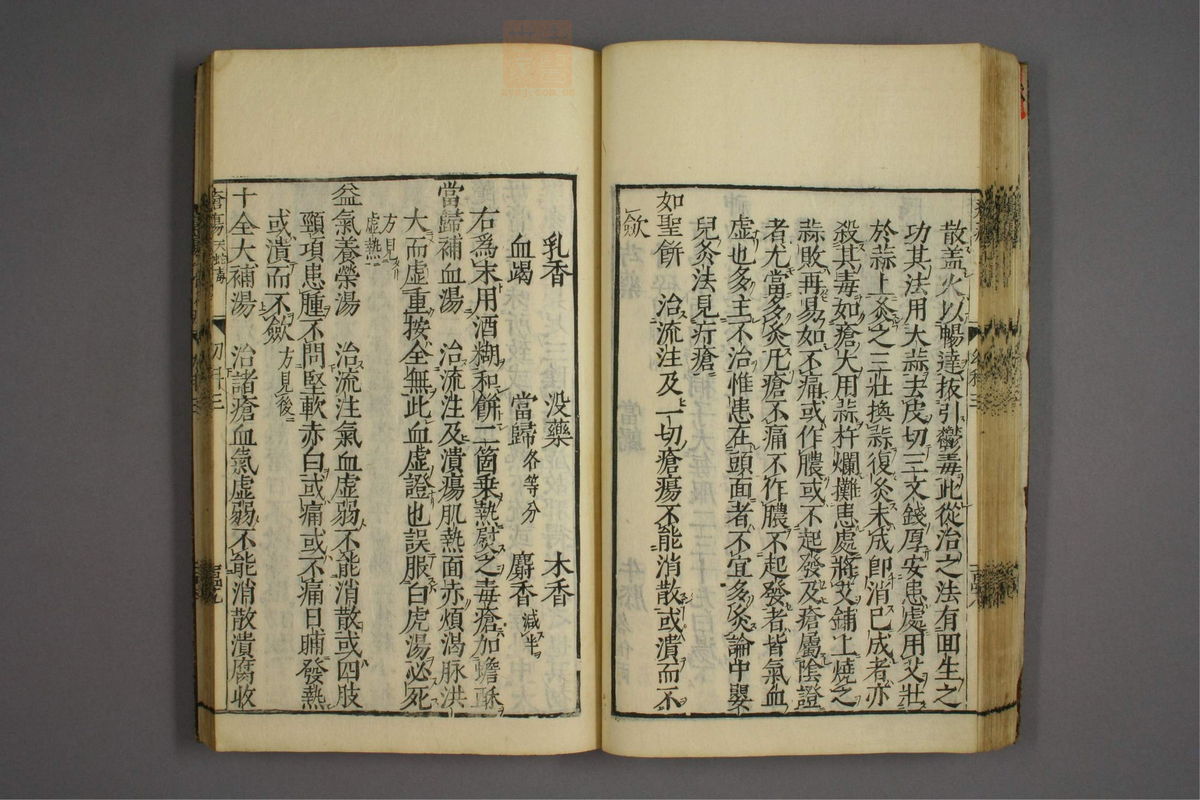 散盖火以暢達拔引鬱毒此從治之法有回生之
功其法用大蒜去皮切三文錢厚安患處用艾壯
於蒜上灸之三壯換蒜復灸未成卽消已成者亦
殺其毒如瘡大用蒜杵爛攤患處將艾鋪上燒之
蒜敗再易如不痛或作膿或不起發及瘡屬陰證
者尤當多灸凡瘡不痛不作膿不起發者皆氣血
虛也多主不治惟患在頭面者不宜多灸論中嬰
兒灸法見疔瘡
如聖餅 治流注及一切瘡瘍不能消散或潰而不
歛
乳香 没藥 木香
血竭 當歸各等分 麝香減半
右爲末用酒糊和餅二箇乗熱熨之毒瘡加蟾酥
當歸補血湯 治流注及潰瘍肌熱面赤煩渴脉洪
大而虛重按全無此血虛證也誤服白虎湯必死
方見
虛熱
益氣養榮湯 治流注氣血虛弱不能消散或四肢
頸項患腫不問堅軟赤白或痛或不痛日晡發熱
或潰而不歛方見後
十全大補湯 治諸瘡血氣虛弱不能消散潰腐收